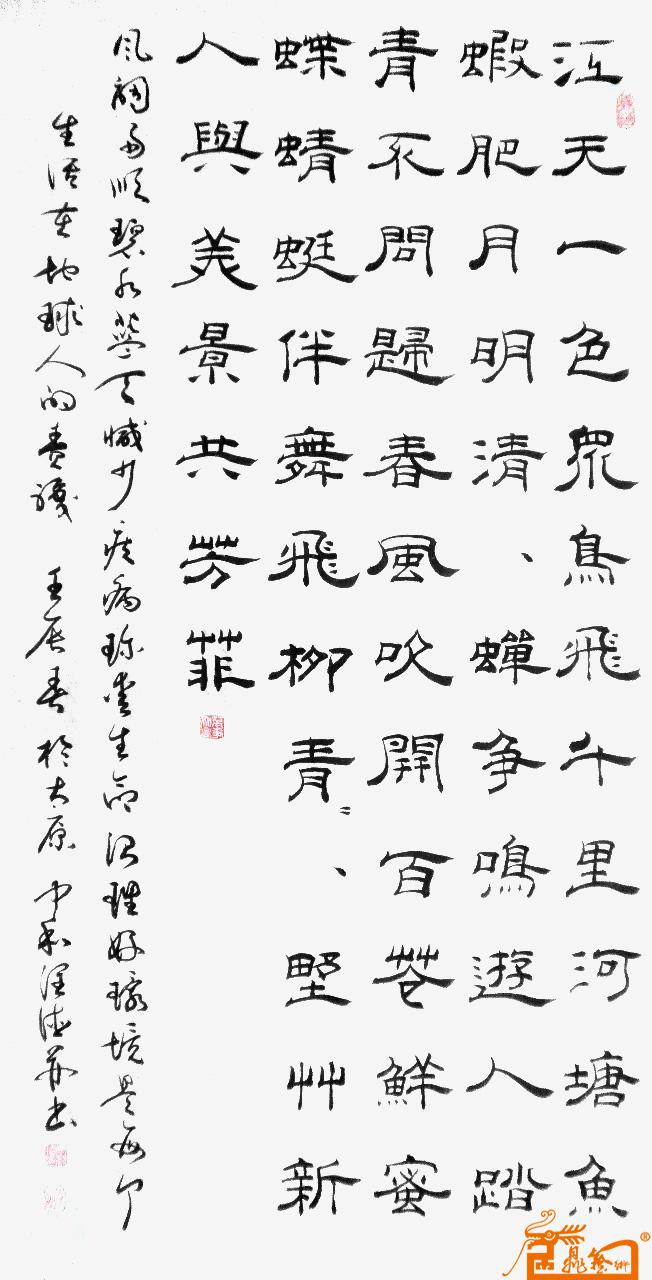 江天一色眾鳥飛千里河塘魚
蝦肥月明清、蟬爭鳴遊人踏
青不問歸春風吹開百花鮮蜜
蝶蜻蜓伴舞飛柳青〻、野艸新
人與美景共芳菲
風調雨順碧水藍天減少疾病珍愛生命治理好環境是每个
生活在地球人的責議 壬辰春於太原中和